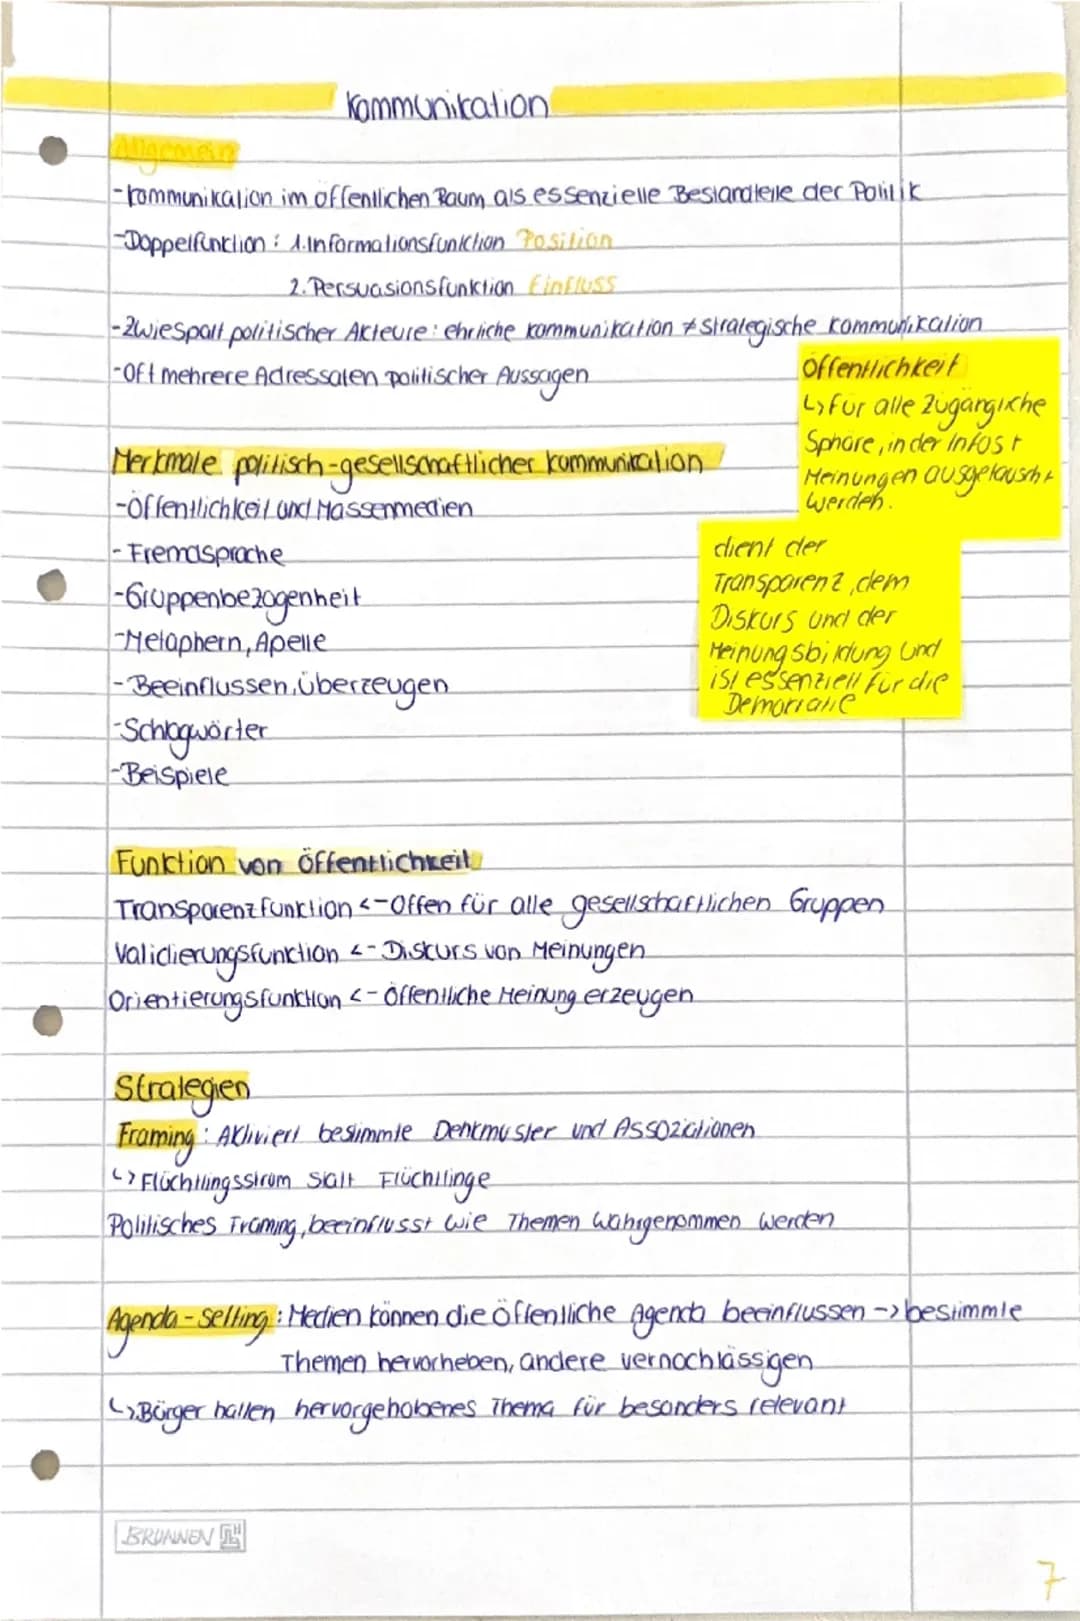 Kommunikation
Allgemein
-Kommunikation im öffentlichen Raum als essenzielle Bestandteile der Politik
-Doppelfunktion: 1. Informationsfunktion Position
2. Persuasionsfunktion Einfluss
-Zwiespalt politischer Akteure: ehrliche Kommunikation ≠ strategische Kommunikation
-Oft mehrere Adressaten politischer Aussagen
Öffentlichkeit
↳ Für alle zugängliche
Sphäre, in der Infos +
Meinungen ausgetauscht
werden.
Merkmale politisch-gesellschaftlicher Kommunikation
-Öffentlichkeit und Massenmedien
-Fremdsprache
-Gruppenbezogenheit
-Metaphern, Apelle
-Beeinflussen, Überzeugen
-Schlagwörter
-Beispiele
dient der
Transparenz, dem
Diskurs und der
Meinungsbildung und
ist essenziell für die
Demokratie
Funktion von Öffentlichkeit
Transparenzfunktion <-Offen für alle gesellschaftlichen Gruppen
Validierungsfunktion <- Diskurs von Meinungen
Orientierungsfunktion <- Öffentliche Meinung erzeugen
Strategien
Framing: Aktiviert bestimmte Denkmuster und Assoziationen
↳ Flüchtlingsstrom statt Flüchtlinge
Politisches Framing, beeinflusst wie Themen wahrgenommen werden
Agenda-Setting: Medien können die öffentliche Agenda beeinflussen -> bestimmte
Themen hervorheben, andere vernachlässigen
↳ Bürger halten hervorgehobenes Thema für besonders relevant
BRUNNEN
7